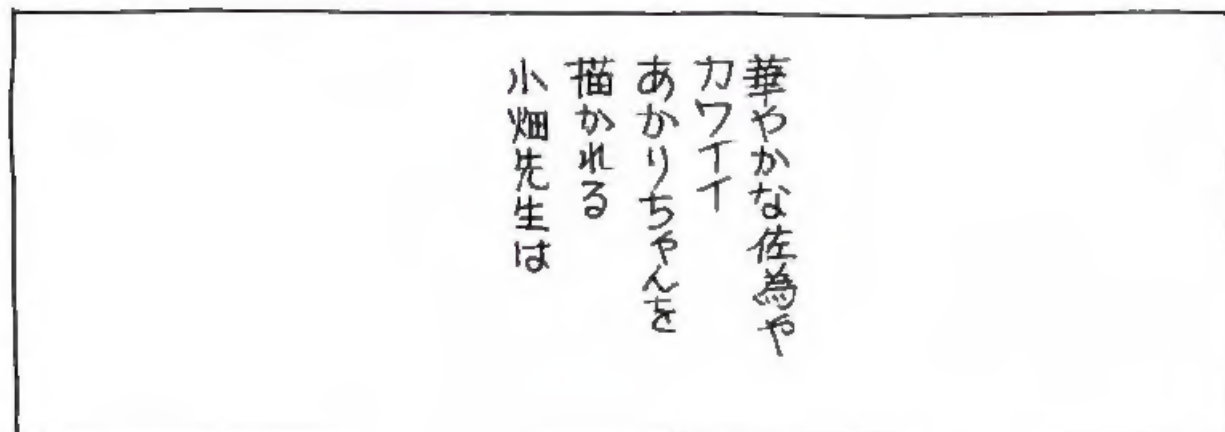 華やかな佐為や
カワイイ
あかりちゃんを
描かれる
小畑先生は